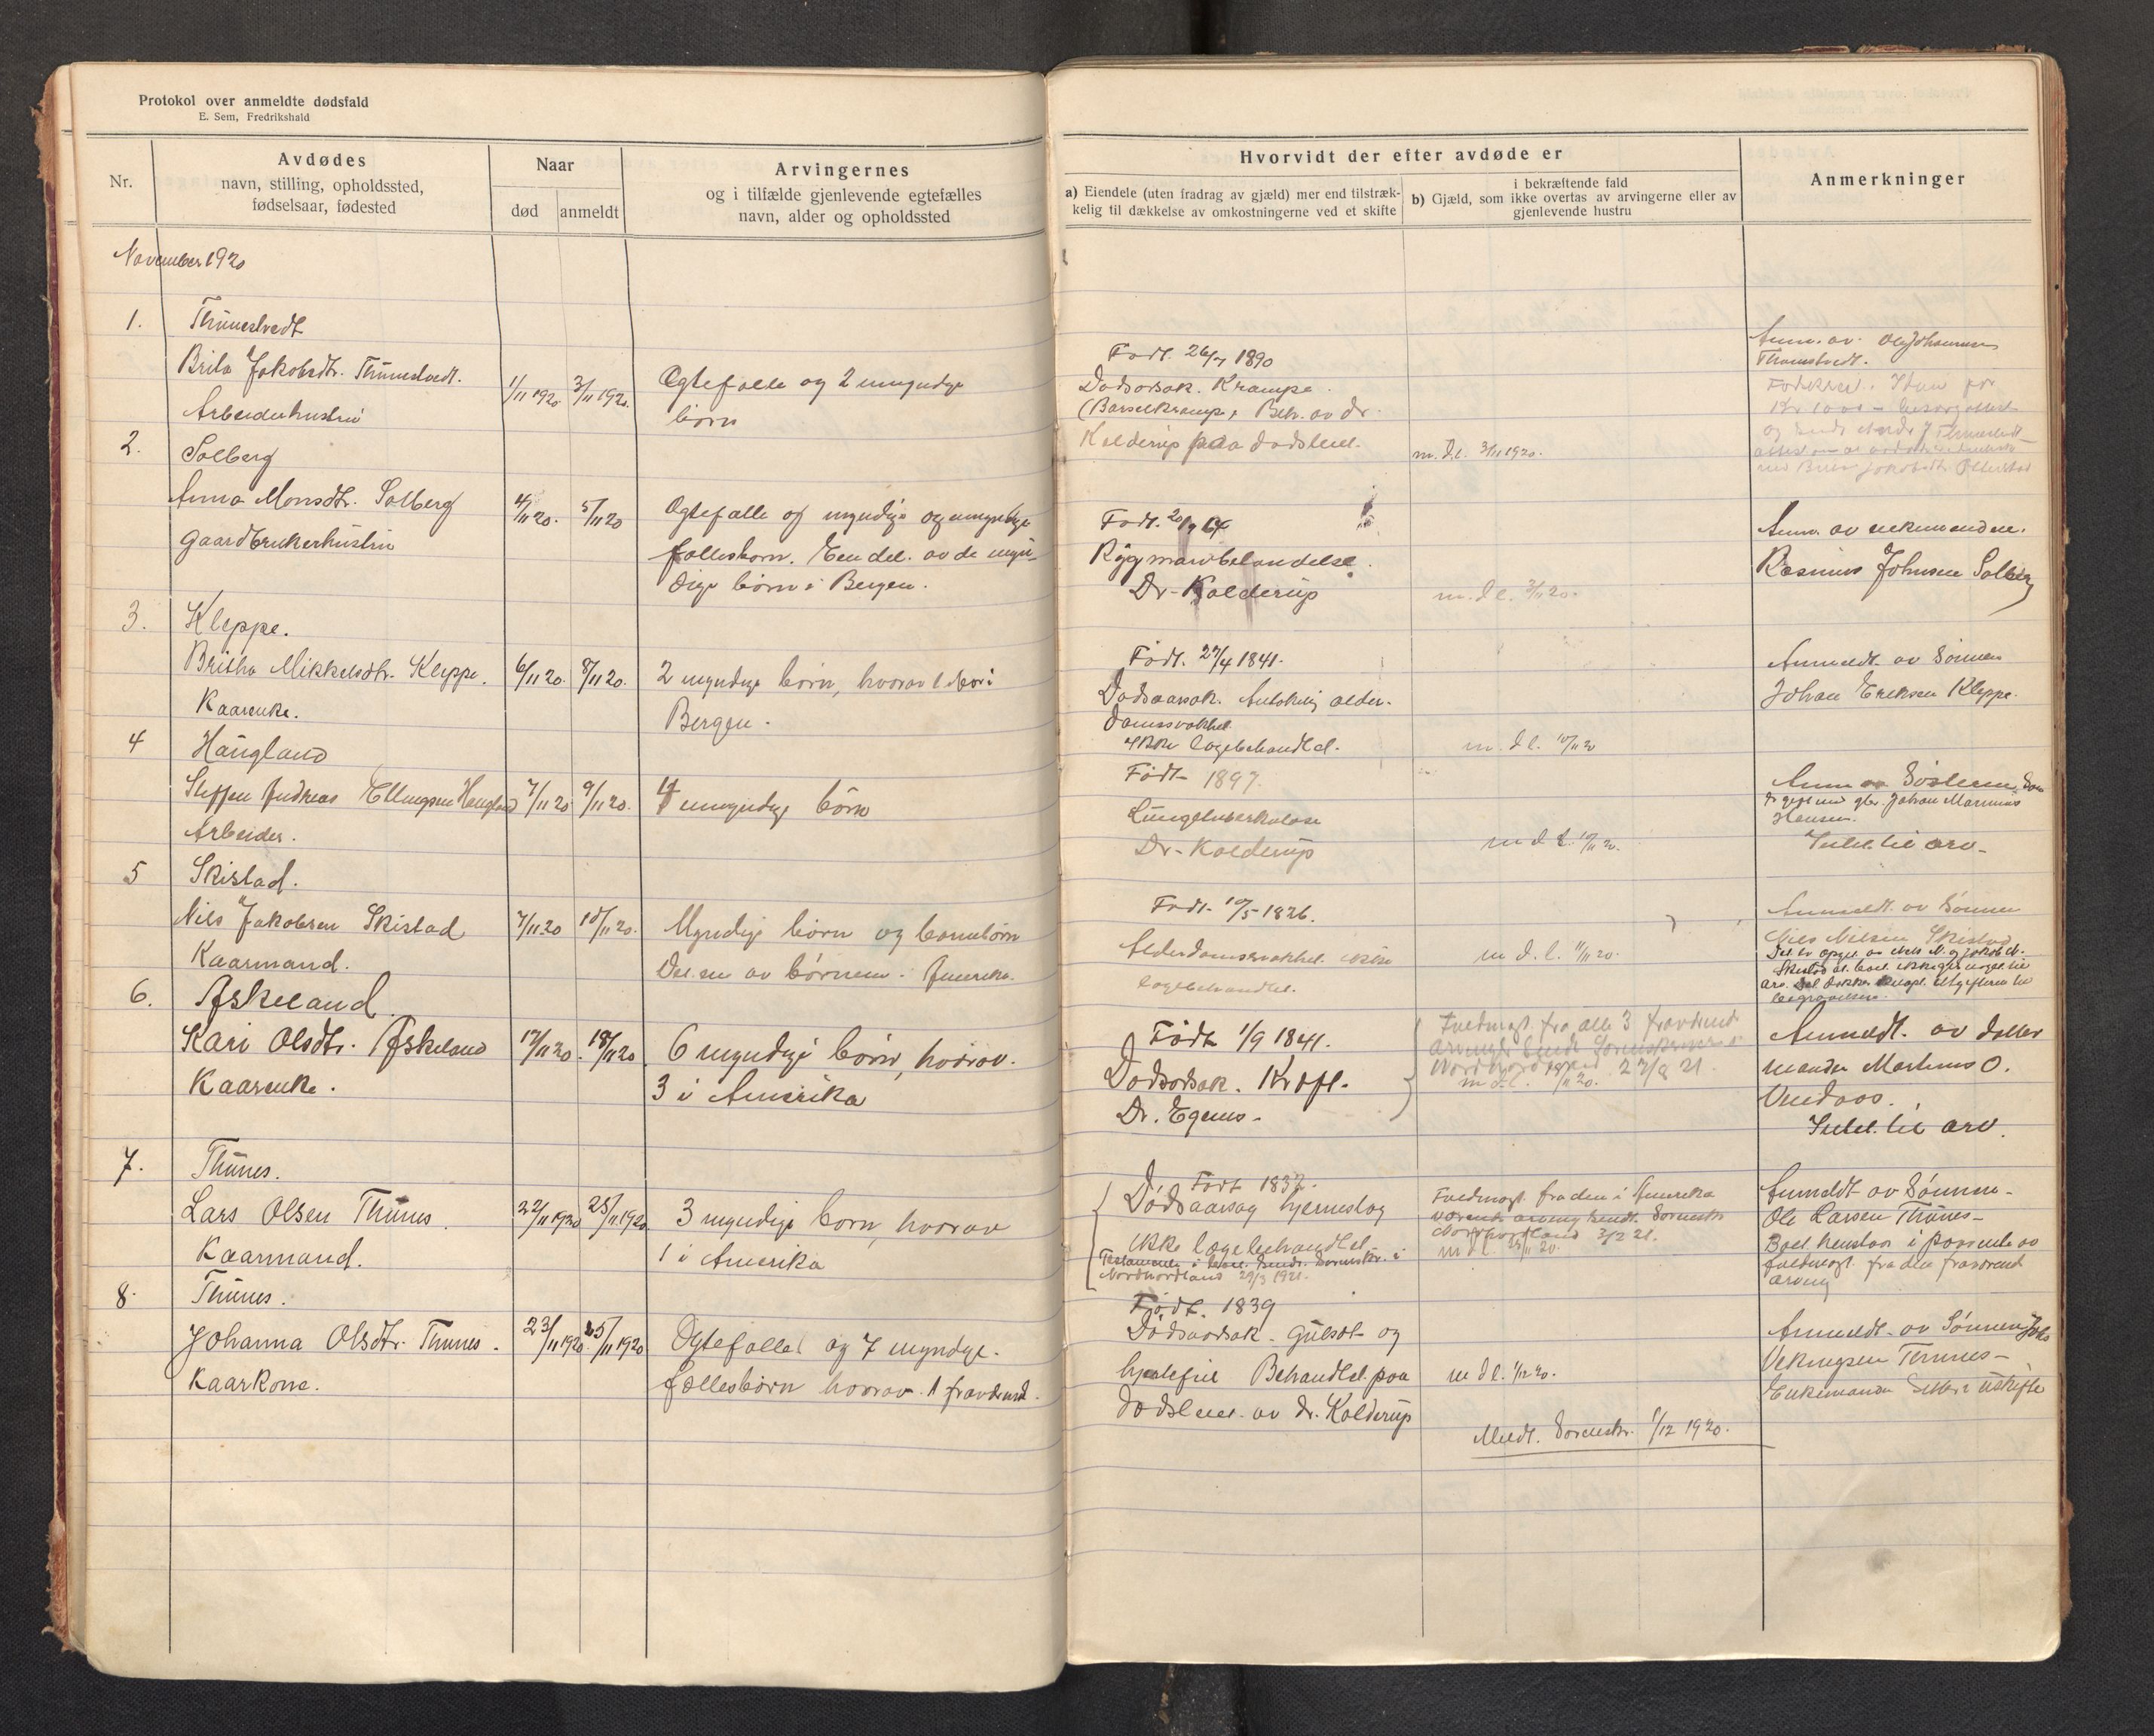 Protokol over anmeldte dødsfald
E. Sem, Fredrikshald
Nr.
Avdødes
navn, stilling, opholdssted,
fødselsaar, fødested
Naar
død
anmeldt
Arvingernes
og i tilfælde gjenlevende egtefælles
navn, alder og opholdssted
Hvorvidt der efter avdøde er
a) Eiendele (uten fradrag av gjæld) mer end tilstræk-
kelig til dækkelse av omkostningerne ved et skifte
i bekræftende fald
b) Gjæld, som ikke overtas av arvingerne eller av
gjenlevende hustru
Anmerkninger
November 1920
1.
Thunestvedt
Brita Jakobsdtr. Thunestvedt.
Arbeiderhustru
1/11 1920
3/11 1920.
Egtefælle og 2 umyndige
børn
Født. 26/7 1890
Dødsorsak. Krampe.
(Barselkrampe, Beh. av dr.
Kolderup paa dødsleiet.
m. d. l. 3/11 1920.
Anm. av
Thunestvedt.
2.
Solberg
Anna Monsdtr. Solberg
Gaardbrukerhustru
4/11 20.
5/11 20
Egtefælle og myndige og umyndige
fællesborn. En del av de myn-
dige børn i Bergen.
Født.
Rygmarvbetændelse.
Dr. Kolderup
m. d. l.
Anm. av enkemanden.
Rasmus Johnsen Solberg
3.
Kleppe.
Britha Mikkelsdtr. Kleppe.
Kaarenke.
6/11 20.
8/11 20.
2 myndige børn, hvorav 1 bor i
Bergen.
Født. 27/4 1841.
Dødsaarsak. Antakelig alder-
domssvakhet.
Ikke lægebehandlet.
m. d. l. 10/11 20
Anmeldt av Sønnen
Johan Eriksen Kleppe.
4
Haugland
Steffen Andreas Ellingsen Haugland
Arbeider.
7/11 20
9/11 20.
4 umyndige børn
Født 1897.
Lungetuberkulose
Dr. Kolderup
m d l. 10/11 20.
Johan Marinus
Hansen.
Intet til arv.
5
Skistad.
Nils Jakobsen Skistad
Kaarmand.
7/11 20
10/11 20.
Myndige børn og barnebørn
Del en av børnene i Amerika.
Født. 10/5 1826.
Alderdomssvakhet ikke
lægebehandlet.
m d. l. 11/11 20.
Anmeldt av Sønnen
Nils Nilsen Skistad
6.
Askeland
Kari Olsdtr. Askeland
Kaarenke.
17/11 20.
18/11 20
6 myndige børn, hvorav.
3 i Amerika
Født 1/9 1841.
Dødsorsak. Kræft.
Dr. Egenes.
Fuldmagt fra alle 3 fraværende
arvinger sendt Sorenskriveren i
Nordhordland 27/8 21.
m d l. 18/11 20.
Anmeldt av datter
manden Martinus O.
Vindaas.
Intet til arv.
7.
Thunes.
Lars Olsen Thunes.
Kaarmand.
22/11 1920
25/11 1920.
3 myndige børn, hvorav
1 i Amerika
Født 1837.
Dødsaarsag hjerneslag
ikke lægebehandlet.
Nordhordland 29/3 1921.
Fuldmagt fra den i Amerika
værende arving sendt Sorenskr.
Nordhordland 3/2 21.
m d l. 25/11 20.
Anmeldt av Sønnen.
Ole Larsen Thunes.
Boet henstaar i paavente av
fuldmagt fra den fraværende
arving
8.
Thunes.
Johanna Olsdtr. Thunes.
Kaarkone.
23/11 1920
25/11 1920
Egtefælle og 7 myndige.
fællesbørn hvorav 1 fraværende.
Født. 1839
Dødsaarsak. Gulsot og
hjertefeil Behandlet paa
dødsleiet. av dr. Kolderup
m d l. 1/12 20.
Anmeldt av Sønnen
Enkemanden sitter i uskifte
Meldt. Sorenskr. 1/12 1920.